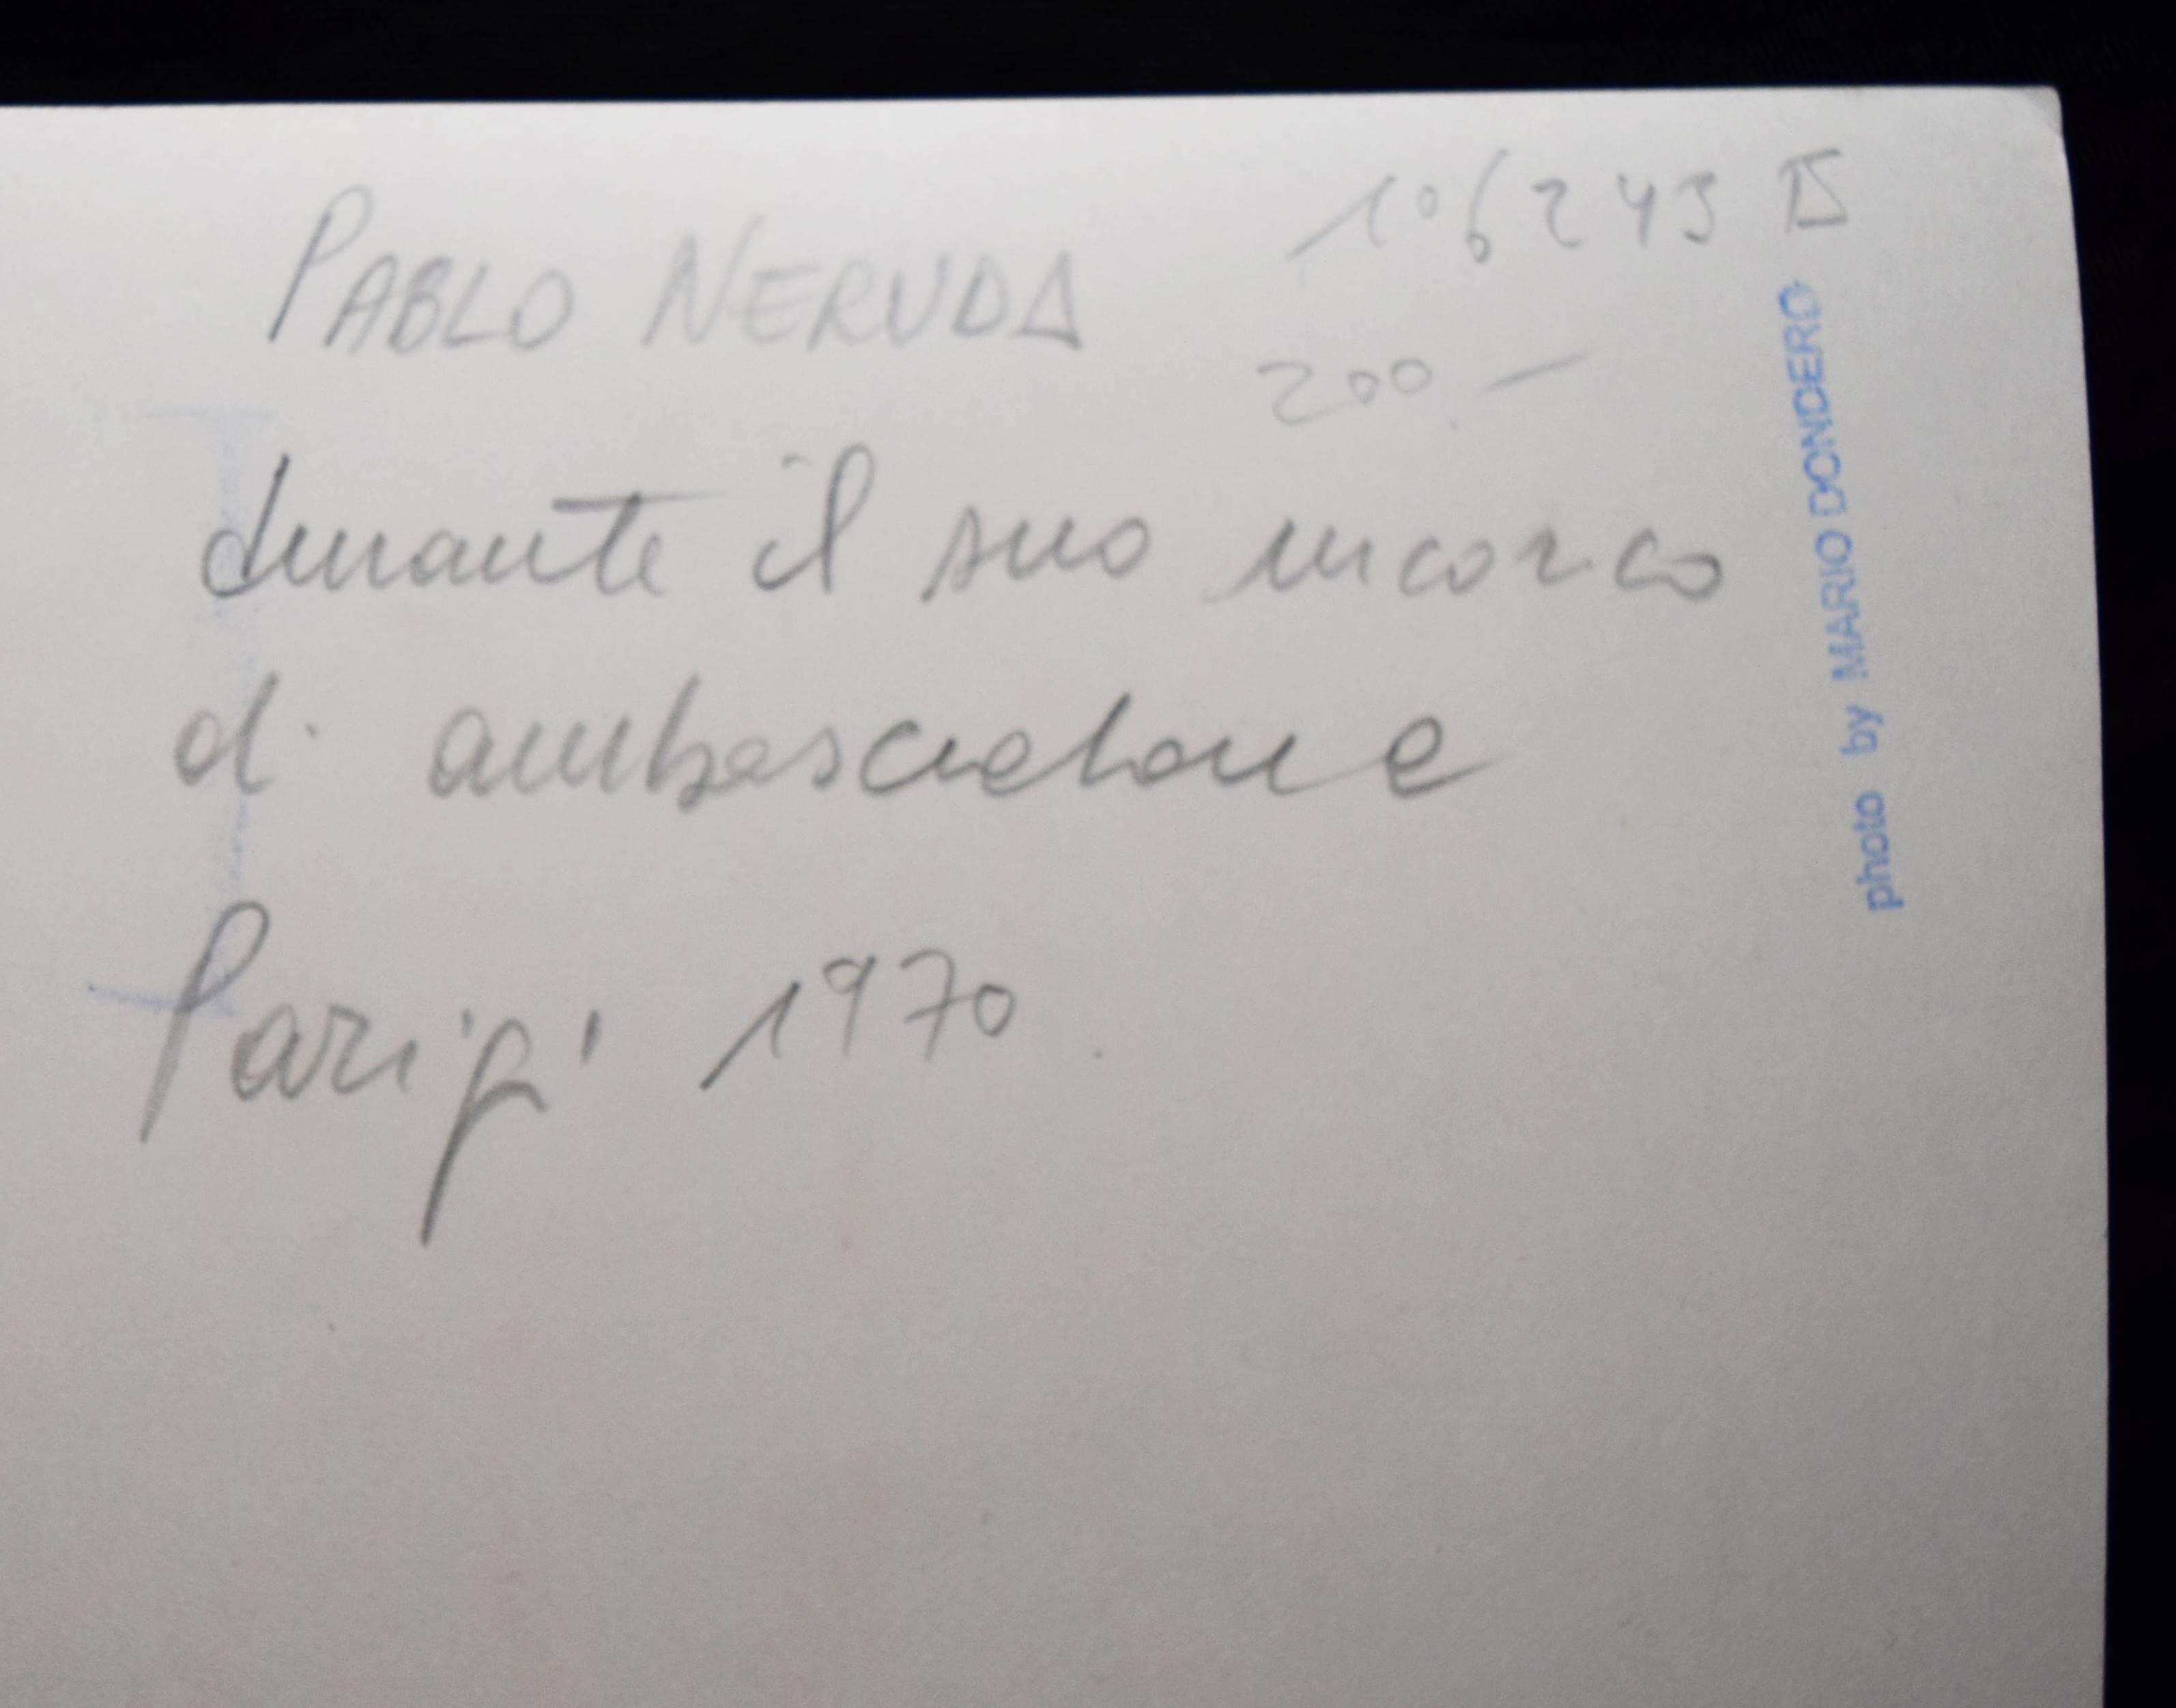 PABLO NERUDA
200.—
durante il suo incarico
di ambasciatore
Parigi 1970.
photo by MARIO DONDERO